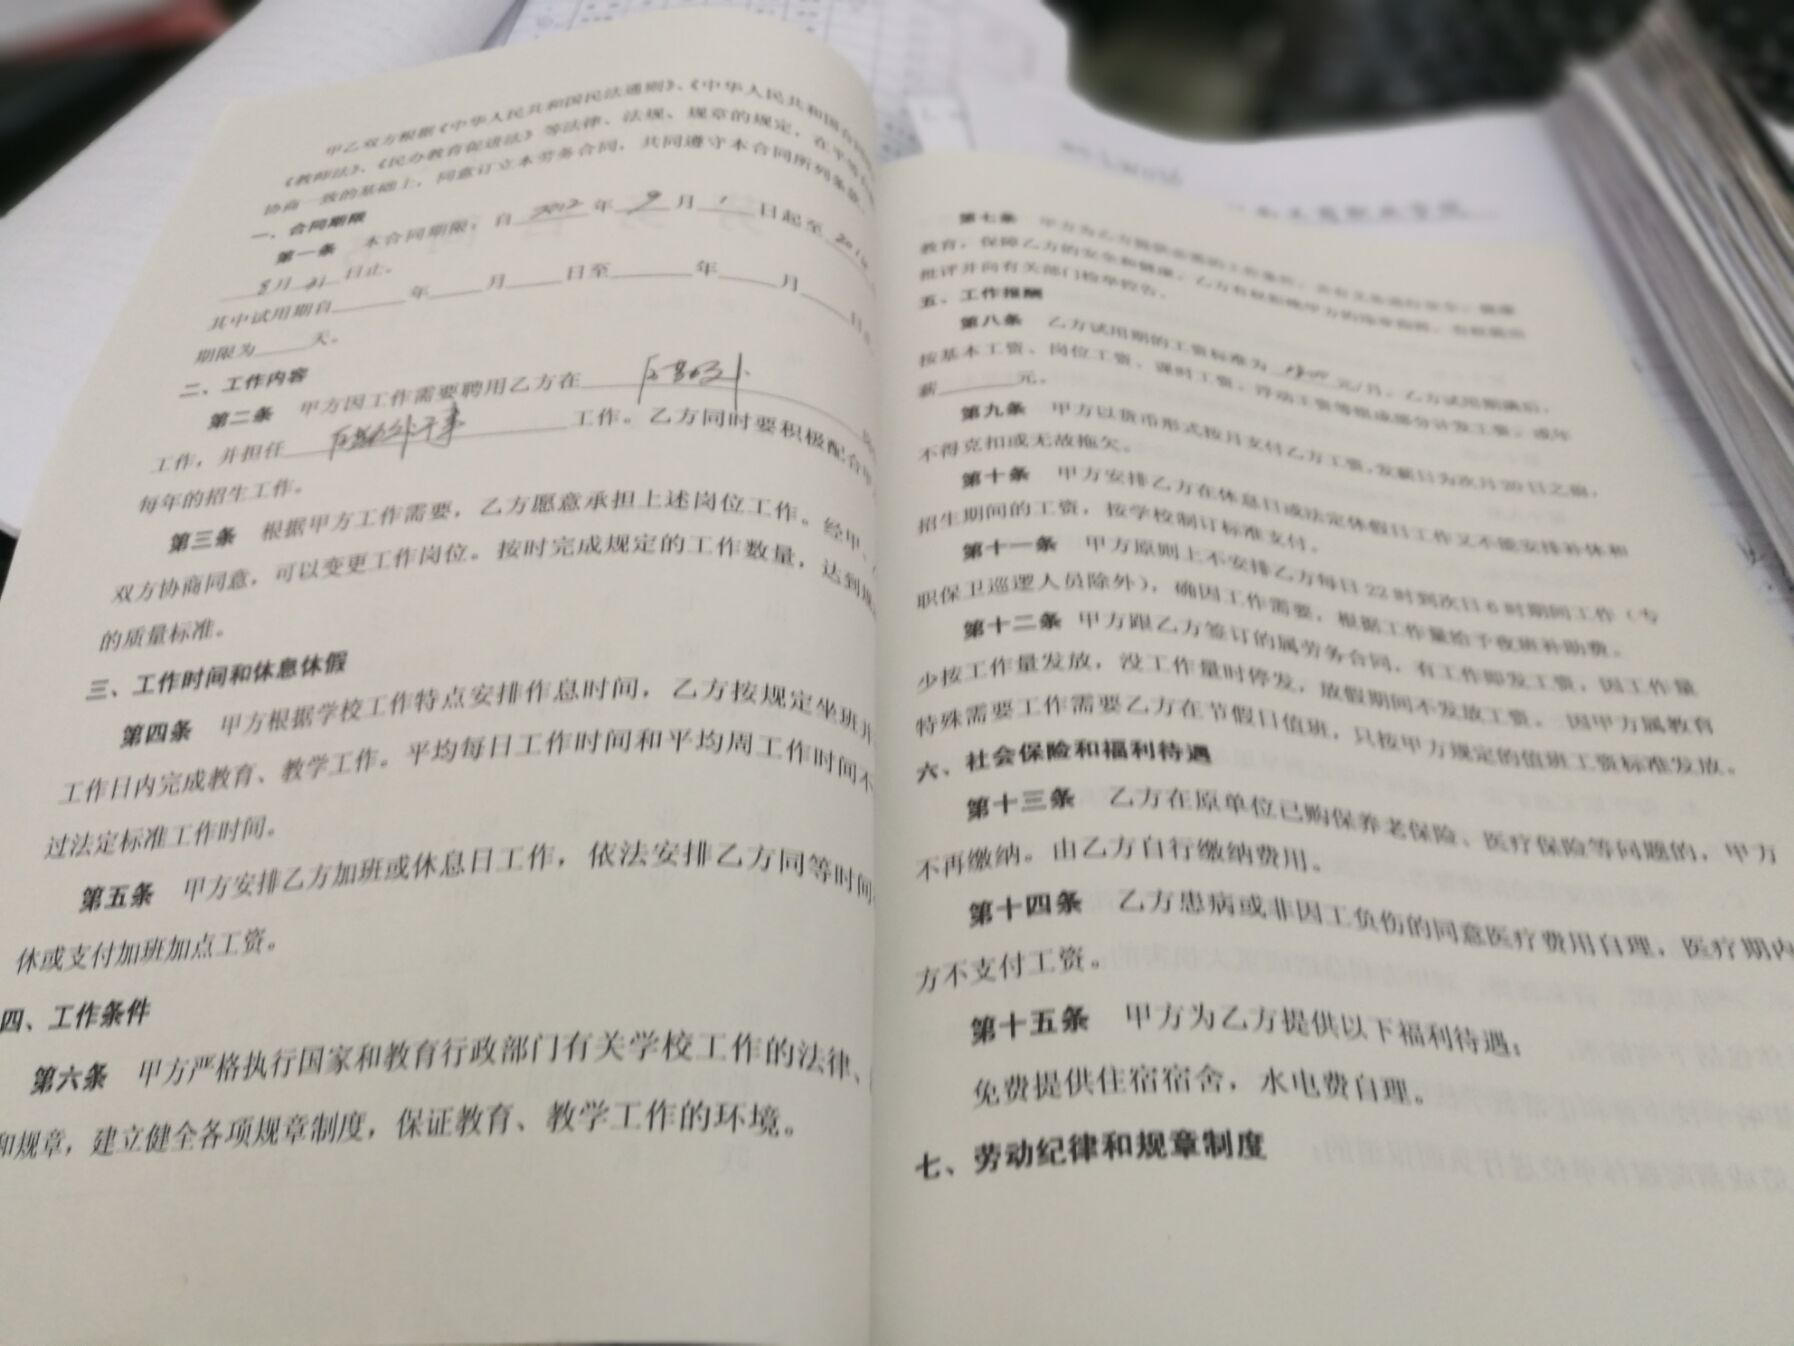 甲乙双方根据《中华人民共和国民法通则》、《中华人民共和国合同
《教师法》、《民办教育促进法》等法律、法规、规章的规定，在平等
协商一致的基础上，同意订立本劳务合同，共同遵守本合同所列条款。
一、合同期限
第一条 本合同期限：自 年 9 月 1 日起至
8月 31 日止。
其中试用期自 年 月 日至 年 月 日
期限为 天。
二、工作内容
第二条 甲方因工作需要聘用乙方在
工作，并担任 工作。乙方同时要积极配合
每年的招生工作。
第三条 根据甲方工作需要，乙方愿意承担上述岗位工作。经甲、
双方协商同意，可以变更工作岗位。按时完成规定的工作数量，达到规
的质量标准。
三、工作时间和休息休假
第四条 甲方根据学校工作特点安排作息时间，乙方按规定坐班
工作日内完成教育、教学工作。平均每日工作时间和平均周工作时间不
过法定标准工作时间。
第五条 甲方安排乙方加班或休息日工作，依法安排乙方同等时间
休或支付加班加点工资。
四、工作条件
第六条 甲方严格执行国家和教育行政部门有关学校工作的法律、
和规章，建立健全各项规章制度，保证教育、教学工作的环境。
第七条 甲方为乙方提供必要的工作条件，
教育，保障乙方的安全和健康。
批评并向有关部门检举控告。
五、工作报酬
第八条 乙方试用期的工资标准为 元/月。乙方试用期满后，
按基本工资、岗位工资、课时工资、浮动工资等组成部分计发工资。或年
薪 元。
第九条 甲方以货币形式按月支付乙方工资，发薪日为次月20日之前，
不得克扣或无故拖欠。
第十条 甲方安排乙方在休息日或法定休假日工作又不能安排补休和
招生期间的工资，按学校制订标准支付。
第十一条 甲方原则上不安排乙方每日22时到次日6时期间工作（专
职保卫巡逻人员除外），确因工作需要，根据工作量给予夜班补助费。
第十二条 甲方跟乙方签订的属劳务合同，有工作即发工资，因工作量
少按工作量发放，没工作量时停发，放假期间不发放工资。因甲方属教育
特殊需要工作需要乙方在节假日值班，只按甲方规定的值班工资标准发放。
六、社会保险和福利待遇
第十三条 乙方在原单位已购保养老保险、医疗保险等问题的，甲方
不再缴纳。由乙方自行缴纳费用。
第十四条 乙方患病或非因工负伤的同意医疗费用自理，医疗期内
方不支付工资。
第十五条 甲方为乙方提供以下福利待遇：
免费提供住宿宿舍，水电费自理。
七、劳动纪律和规章制度